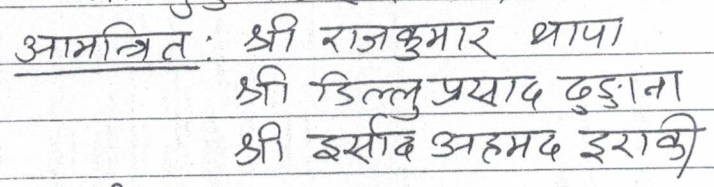 आमन्त्रित: श्री राजकुमार थापा
श्री डिल्लु प्रसाद ढुङ्गाना
श्री इर्साद अहमद इराकी